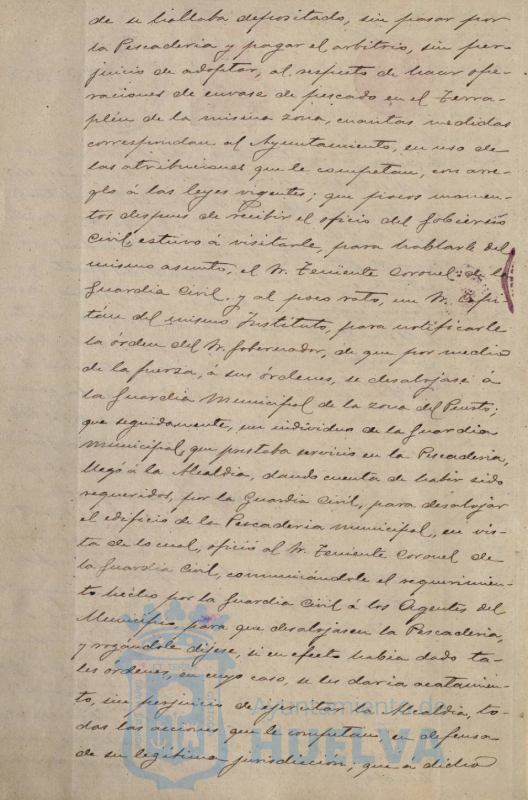 de se hallaba depositado, sin pasar por
la Pescaderia y pagar el arbitrio, sin per-
juicio de adoptar, al respecto de hacer ope-
raciones de envase de pescado en el Terra-
plén de la misma zona, cuantas medidas
correspondan al Ayuntamiento, en uso de
las atribuciones que le competan, con arre-
glo á las leyes vigentes; que pocos momen-
tos despues de recibir el oficio del Gobierno
Civil, estuvo á visitarle, para hablarle del
mismo asunto, el Sr. Teniente Coronel de la
Guardia Civil, y al poco rato, un Sr. Capi-
tán del mismo Instituto, para notificarle
la órden del Sr. Gobernador, de que por medio
de la fuerza, á sus órdenes, se desalojase á
la Guardia Municipal de la zona del Puerto;
que seguidamente, un individuo de la Guardia
Municipal, que prestaba servicio en la Pescaderia,
llegó á la Alcaldia, dando cuenta de haber sido
requeridos, por la Guardia Civil, para desalojar
el edificio de la Pescaderia Municipal, en vis-
ta de lo cual, ofició al Sr. Teniente Coronel de
la Guardia Civil, comunicándole el requerimien-
to hecho por la Guardia Civil á los Agentes del
Municipio para que desalojasen la Pescaderia,
y rogándole dijese, si en efecto habia dado ta-
les órdenes, en cuyo caso, se les daria acatamien-
to, sin perjuicio de ejercitar la Alcaldia, to-
das las acciones que le competan, en defensa
de su legítima jurisdiccion; que a dicho
Ayuntamiento de
HUELVA